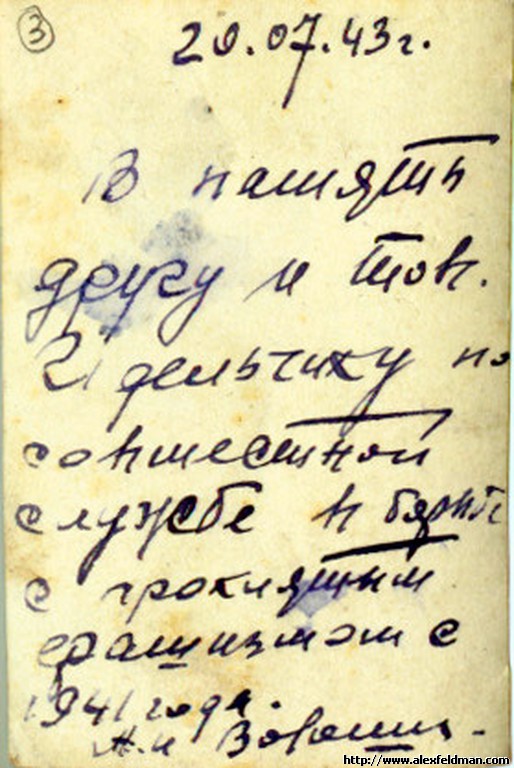 3
20.07.43 г.
В память
другу и тов.
Идельчику по
совместной
службе в борьбе
с проклятым
фашизмом с
1941 года.
http://www.alexfeldman.com